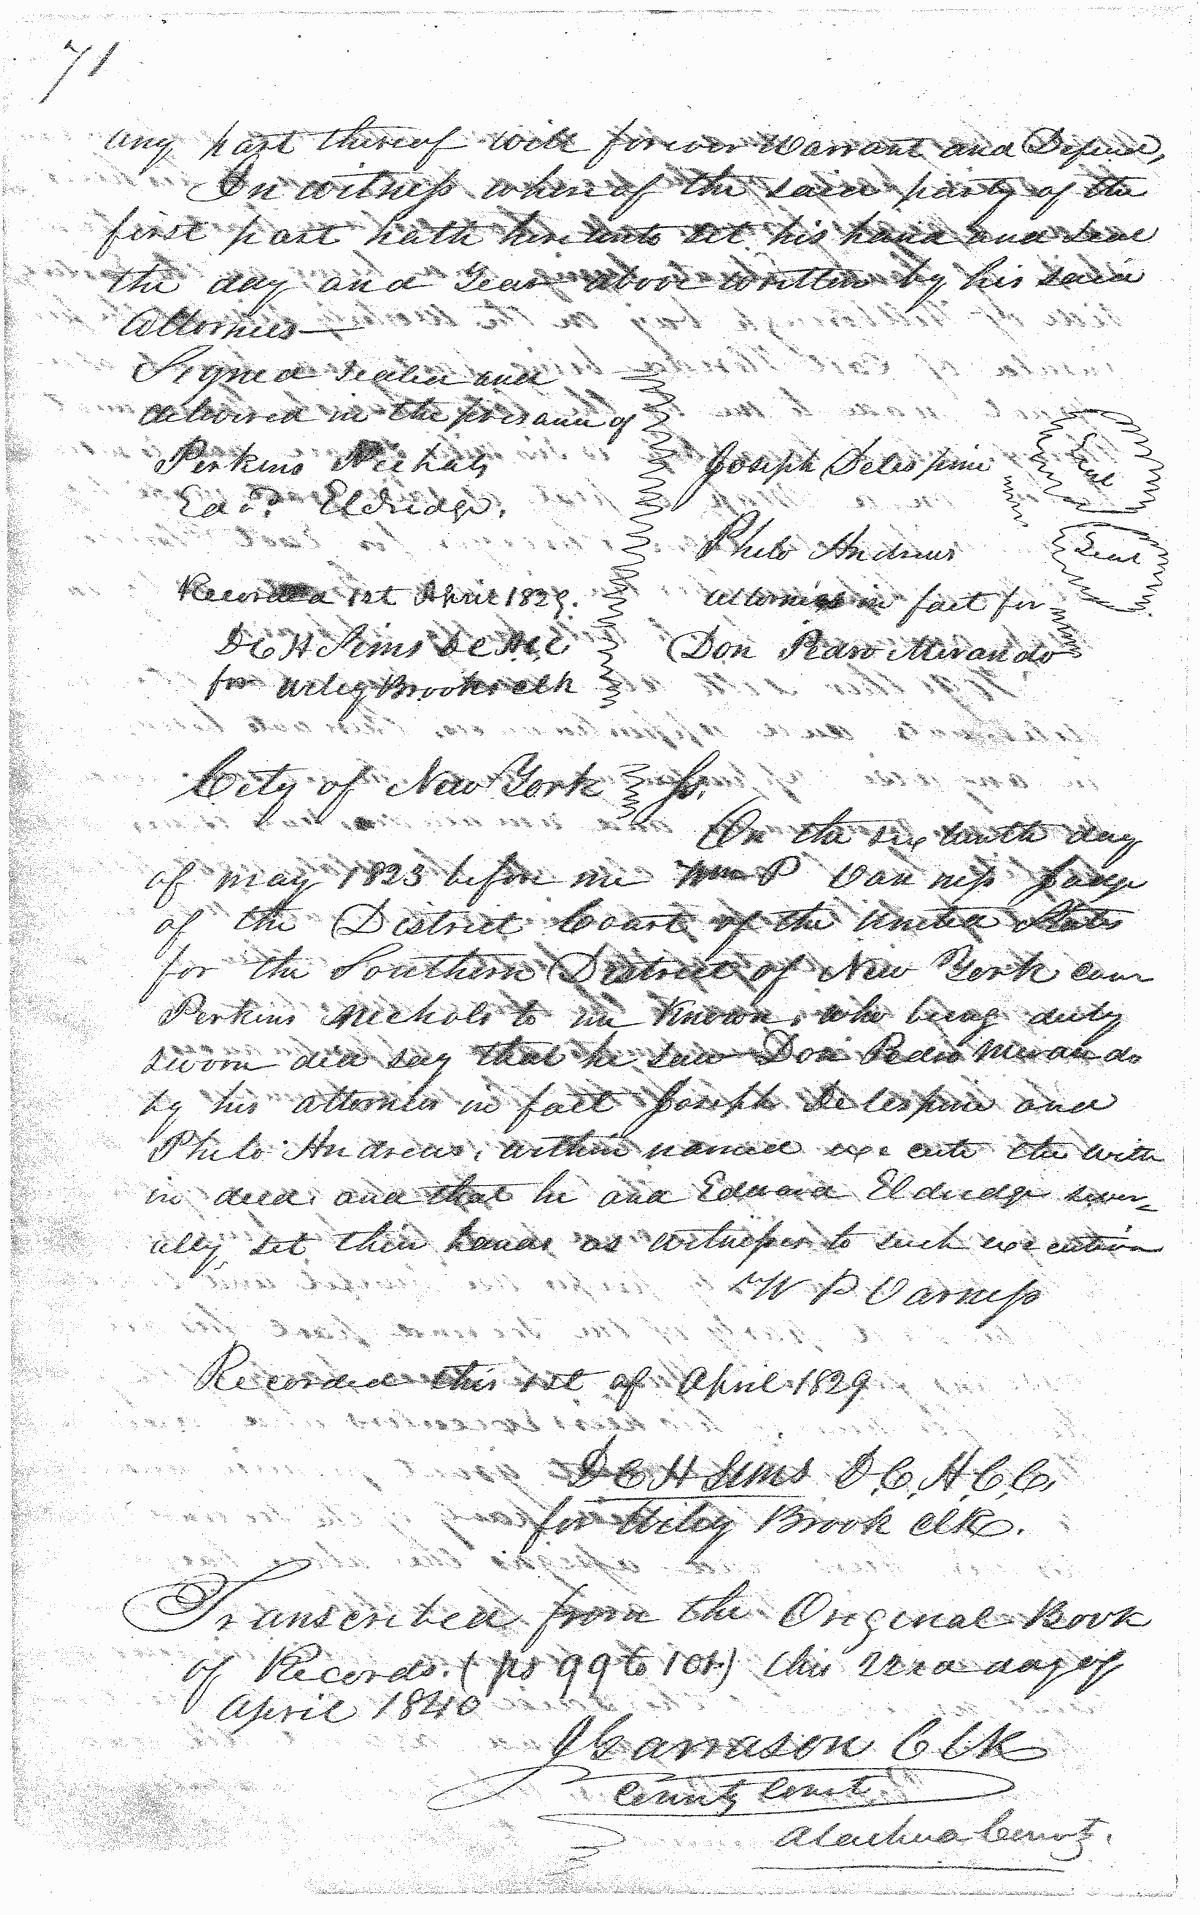 71
any part thereof will forever Warrant and Defend,
In witness whereof the said party of the
first part hath hereunto set his hand and seal
the day and Year above written by his said
Attornies—
Signed sealed and
delivered in the presance of
Perkins Nichols
Edwd. Eldridge.
Joseph Delespine
Seal
Philo Andrews
Seal
attornies in fact for
Don Pedro Mirando
Recorded 1st April 1829.
D C H Sims
for Wiley Brooks clk
City of New York Ss.
On the sixteenth day
of may 1823 before me Wm P Van ness Judge
of the District Court of the United States
for the Southern District of New York came
Perkins Nichols to me Known, who being duly
sworn did say that he saw Don Pedro Mirando
by his attornies in fact Joseph Delespine and
Philo Andrews, within named execute the with
in deed and that he and Edward Eldridge sever-
ally, set their hands as witnesses to such execution
W P Varness
Recorded this 1st of April 1829
D C H Sims D.C.A.C.C.
for Wiley Brook clk.
Transcribed from the Original Book
of Records. (ps 99 to 101) this 22nd day of
April 1840
J Garrason Clk
County Court
Alachua County.